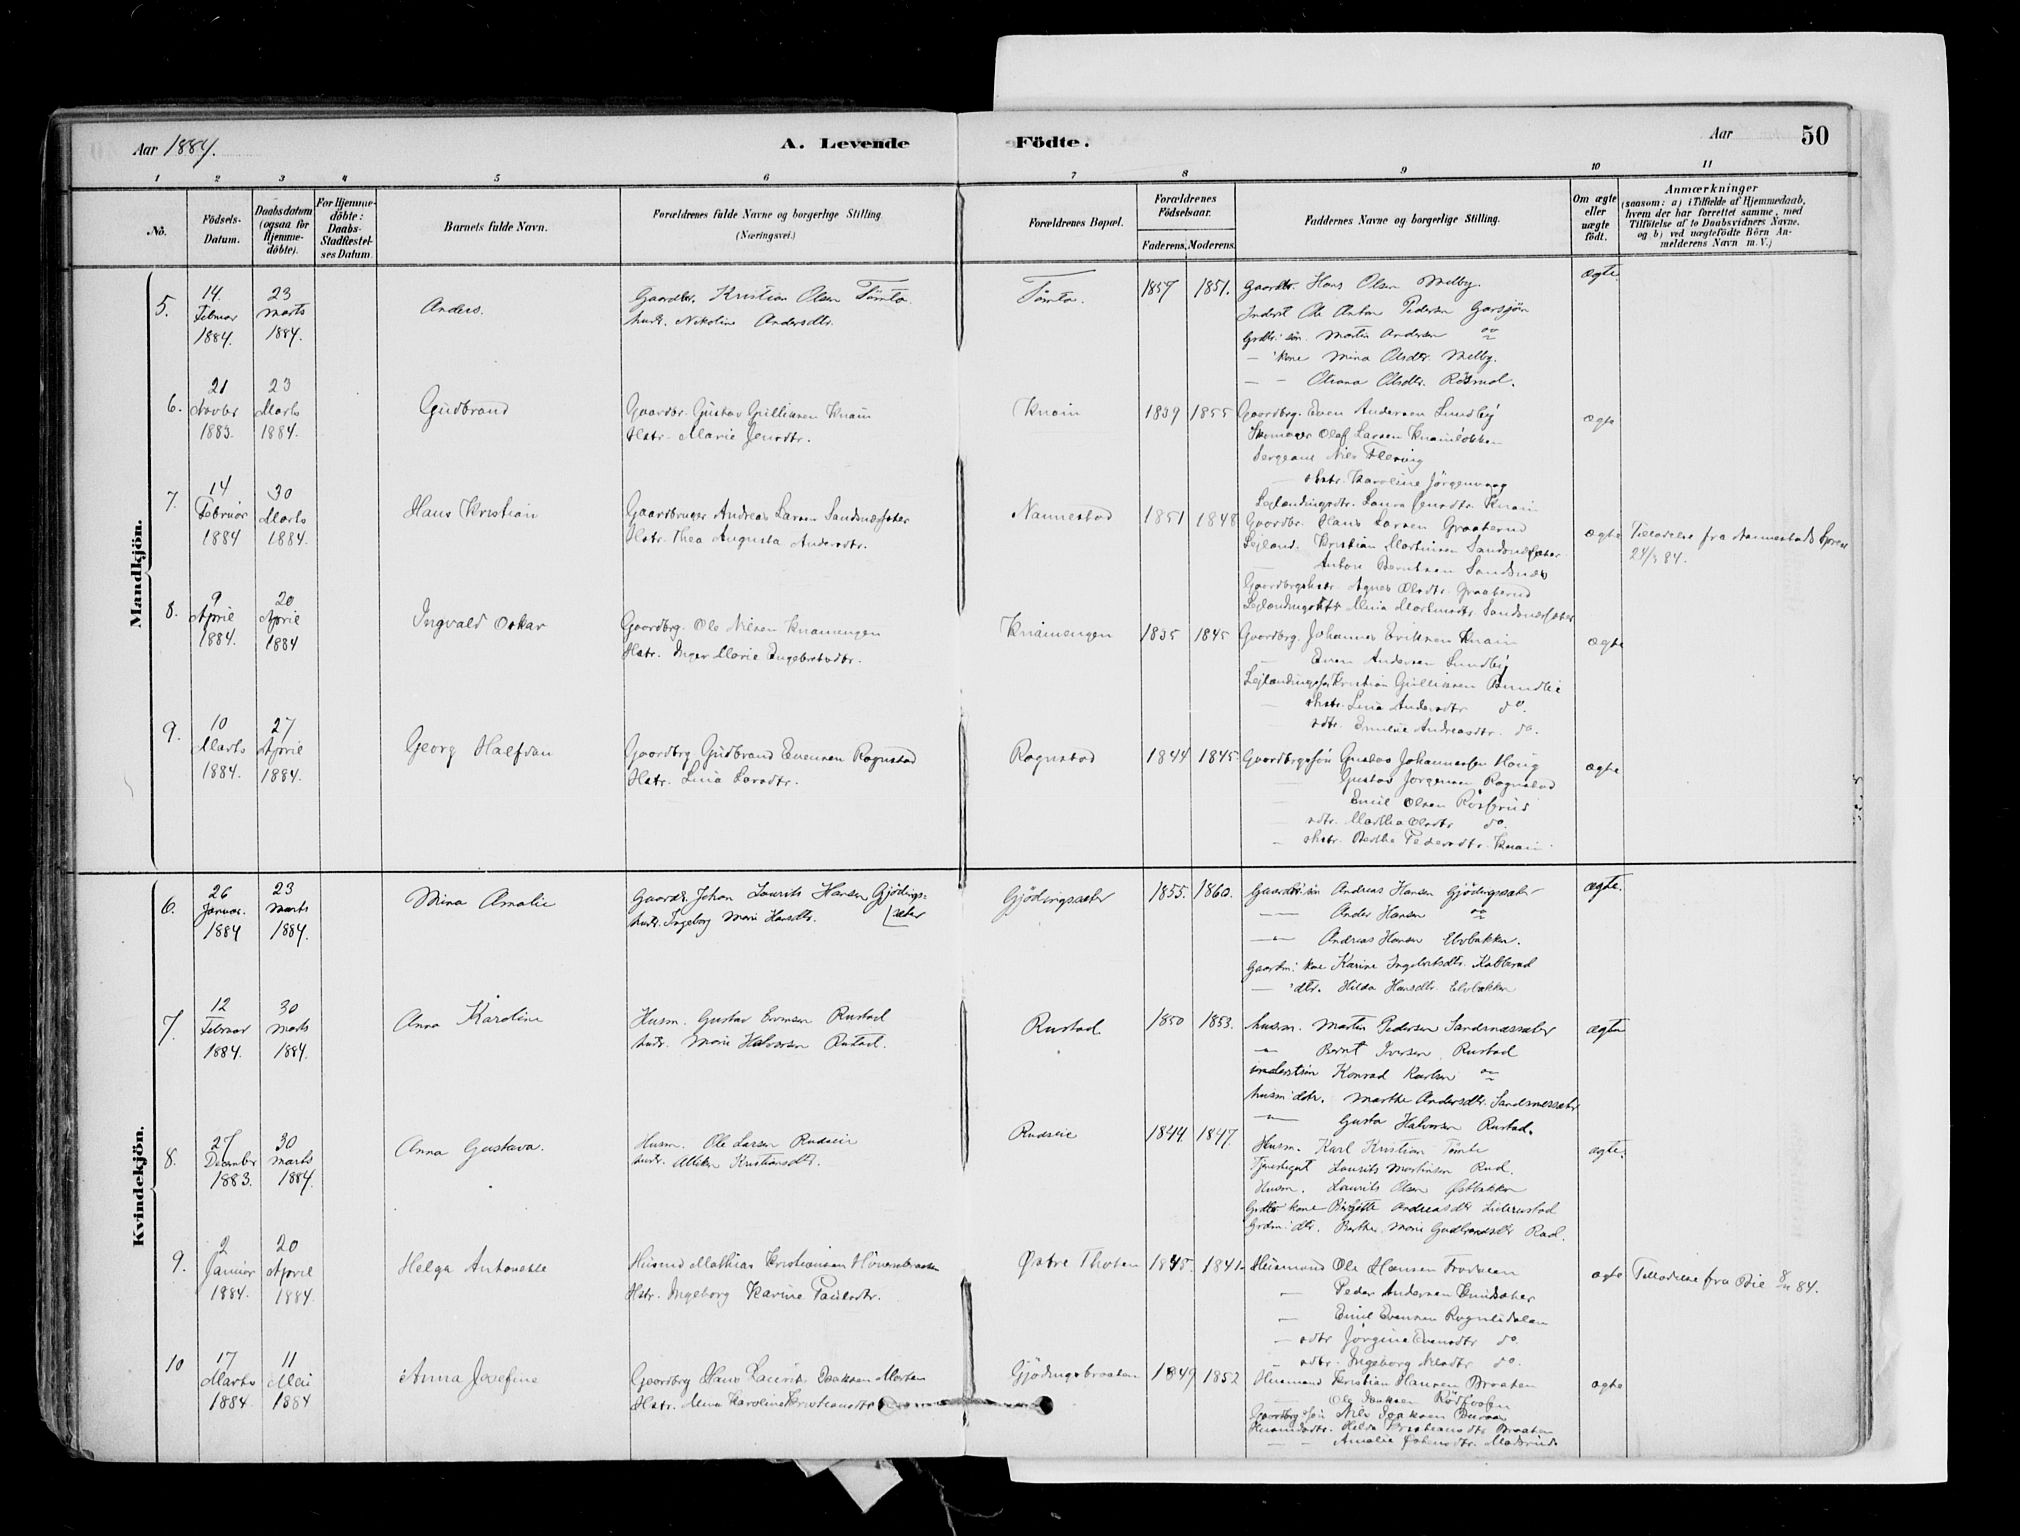 Aar 1884.
A. Levende Födte.
Aar
50
1 2 3 4 5 6 7 8 9 10 11
No.
Födsels-Datum.
Daabsdatum (ogsaa for Hjemmedöbte).
For Hjemmedöbte: Daabs-Stadfestelses Datum
Barnets fulde Navn.
Forældrenes fulde Navne og borgerlige Stilling (Næringsvei.)
Forældrenes Bopæl.
Forældrenes Födselsaar.
Faderens. Moderens.
Faddernes Navne og borgerlige Stilling.
Om ægte eller uægte födt.
Anmærkninger
(saasom: a) i Tilfælde af Hjemmedaab, hvem der har forrettet samme, med Tilföielse af to Daabsvidners Navne, og b) ved uægtefödte Börn Anmelderens Navn m. V.)
Mandkjön.
5. 14. Februar 1884. 23 Marts 1884. Anders.
Gaardbr. Kristian Olsen Tømte
hustr. Nikoline Andersdtr.
Tømte. 1857 1851.
Gaardbr. Hans Olsen Melby.
Inderst Ole Anton Pedersen Garsjøn
Grdbr. søn. Martin Andersen do
— kone Mina Olsdtr. Melby.
— — Olsdtr.
ægte
6. 21 Novbr 1883. 23 Marts 1884. Gudbrand
Gaardbr. Gustav Gulliksen Knain
Hstr. Marie Jensdtr.
Knain 1839 1855
Gaardbrg. Even Andersen Lundby
Skomager Olaf Larsen
Sergeant Nils
hstr. Karoline
Laura Knain
ægte
7. 14 Februar 1884 30 Marts 1884. Hans Kristian
Gaardbruger Andreas Larsen Sandsnæssæter
Hstr. Thea Augusta Andersdtr.
Nannestad 1851 1848
Gaardbr. Hans Larsen Graaberud
Lejland. Kristian Martinsen Sandsnæssæter
— Anton Berntsen Sandsnæs
Agnes Olsdtr. Graaberud
Mina Martinsdtr. Sandsnæssæter
ægte
Tilladelse fra Nannestads
24/3 84.
8. 9 April 1884. 20 April 1884 Ingvald Oskar
Gaardbrg. Ole Nilsen Knainengen
Hstr. Inger Marie Engebretsdtr.
Knainengen 1835 1845
Gaardbrg. Johannes Eriksen Knain
— Even Andersen Lundby
Kristian Gulliksen
— hstr. Lina Andersdtr do.
— dtr. Emilie Andreasdtr. do.
ægte
9. 10 Marts 1884. 27 April 1884. Georg Halfdan
Gaardbrg. Gudbrand Evensen Rognstad
Hstr. Lina Larsdtr.
Rognstad 1844 1845.
Gaardbrgssøn Gustav Johannesen
— Gustav Jörgensen Rognstad
— Emil Olsen
— dtr. Martha Olsdtr do.
— hstr. Berthe Pedersdtr. Knain
ægte
Kvindekjön.
6. 26 Januar. 1884 23 Marts 1884. Mina Amalie
Gaardbr. Johan Laurits Hansen Gjödings-
hustr. Ingeborg Marie Hansdtr. sæter
Gjödingsæter 1855. 1860.
Gaardbr: søn Andreas Hansen Gjödingsæter
— Anders Hansen do
— Andreas Hansen Elvbakken.
Gaardm: kone Karine Ingebretsdtr.
— dtr. Hilda Hansdtr. Elvbakken
ægte.
7. 12 Februar 1884. 30 Marts 1884. Anna Karoline
Husm. Gustav Evensen Rustad
hustr. Marie Halvorsen Rustad.
Rustad 1850 1853.
husm. Martin Pedersen Sandsnæssæter
— Bernt Iversen Rustad
inderstsøn Konrad Karlsen do
husm: dtr. Marthe Andersdtr. Sandsnæssæter
— Gusta Halvorsen Rustad.
ægte
8. 27 December 1883. 30 Marts 1884. Anna Gustava.
Husm. Ole Larsen Rudseie
hustr. Kristiansdtr.
Rudseie 1844 1847.
Husm. Karl Kristian Tømte
Tjenestegut Laurits Martinsen Rud.
Husm. Laurits Olsen Østbakken
Grdbr kone Birgitte Andreasdtr
Grdm: dtr. Berthe Marie Gudbrandsdtr Rud.
ægte.
9. 2 Januar 1884. 20 April 1884. Helga Antonette
Husmd Mathias Kristiansen
Hstr. Ingeborg Karine Paulsdtr.
Østre Thoten 1848. 1841.
Husmand Ole Hansen
— Peder Andersen
— Emil Evensen
— dtr Jörgine Evensdtr do
— dtr. Ingeborg Nilsdtr do.
ægte
Tilladelse fra
84.
10 17 Marts 1884 11 Mai 1884 Anna Josefine
Gaardbrg Hans Laurits Isaksen
Hstr. Mina Karoline Kristiansdtr
Gjödingsbraaten 1849 1852
Husmand Kristian Hansen Braaten
— Ole Isaksen
Gaardbrgssøn Nils Isaksen
Husmdsdtr. Hilda Kristiansdtr Braaten
— — Amalie
ægte